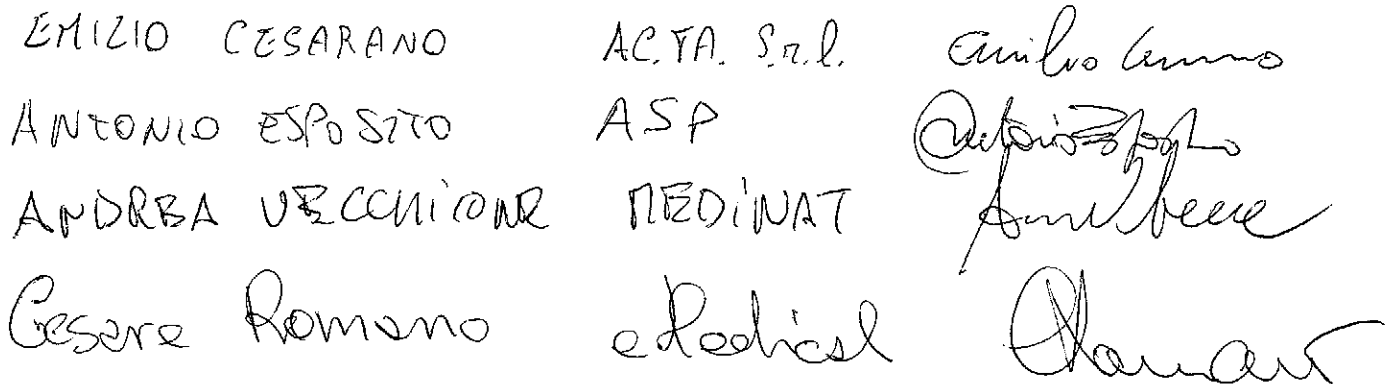 EMILIO CESARANO AC.TA. S.r.l. Emilio
ANTONIO ESPOSITO ASP Antonio Esposito
ANDREA VECCHIONE MEDINAT
Cesare Romano eMedical